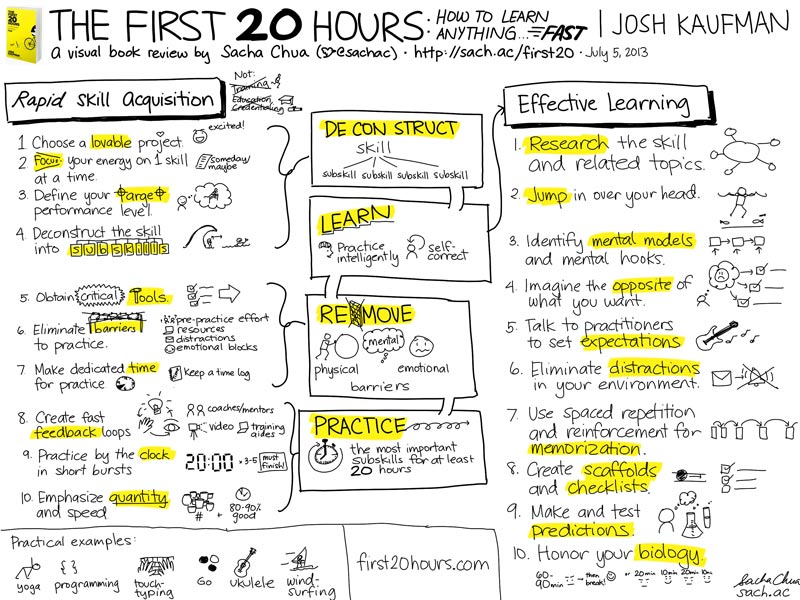 THE FIRST 20 HOURS: HOW TO LEARN ANYTHING... FAST | JOSH KAUFMAN
a visual book review by Sacha Chua (@sachac) · http://sach.ac/first20 · July 5, 2013
Rapid Skill Acquisition
Not:
Training
Education
Credentialing
1 Choose a lovable project.
excited!
2 Focus your energy on 1 skill
at a time.
someday/
maybe
3. Define your target
performance level.
4. Deconstruct the skill
into subskills
5. Obtain critical Tools.
6. Eliminate barriers
to practice.
pre-practice effort
resources
distractions
emotional blocks
7. Make dedicated time
for practice
Keep a time log
8. Create fast
feedback loops
coaches/mentors
video
training
aides
9. Practice by the clock
in short bursts
20:00 x 3-5 must
finish!
10. Emphasize quantity
and speed.
# + 80-90%
good
DECONSTRUCT
skill
subskill subskill subskill subskill
LEARN
Practice
intelligently
self-
correct
REMOVE
physical
mental
emotional
barriers
PRACTICE
the most important
subskills for at least
20 hours
Effective Learning
1. Research the skill
and related topics.
2. Jump in over your head.
3. Identify mental models
and mental hooks.
4. Imagine the opposite of
what you want.
5. Talk to practitioners
to set expectations
6. Eliminate distractions
in your environment.
7. Use spaced repetition
and reinforcement for
memorization.
8. Create scaffolds
and checklists.
9. Make and test
predictions.
10. Honor your biology.
60-
90min → then
break!
or 20min 10min 20min 10min
Practical examples:
yoga
{ }
programming
touch-
typing
Go
ukulele
wind-
surfing
first20hours.com
Sacha Chua
sach.ac